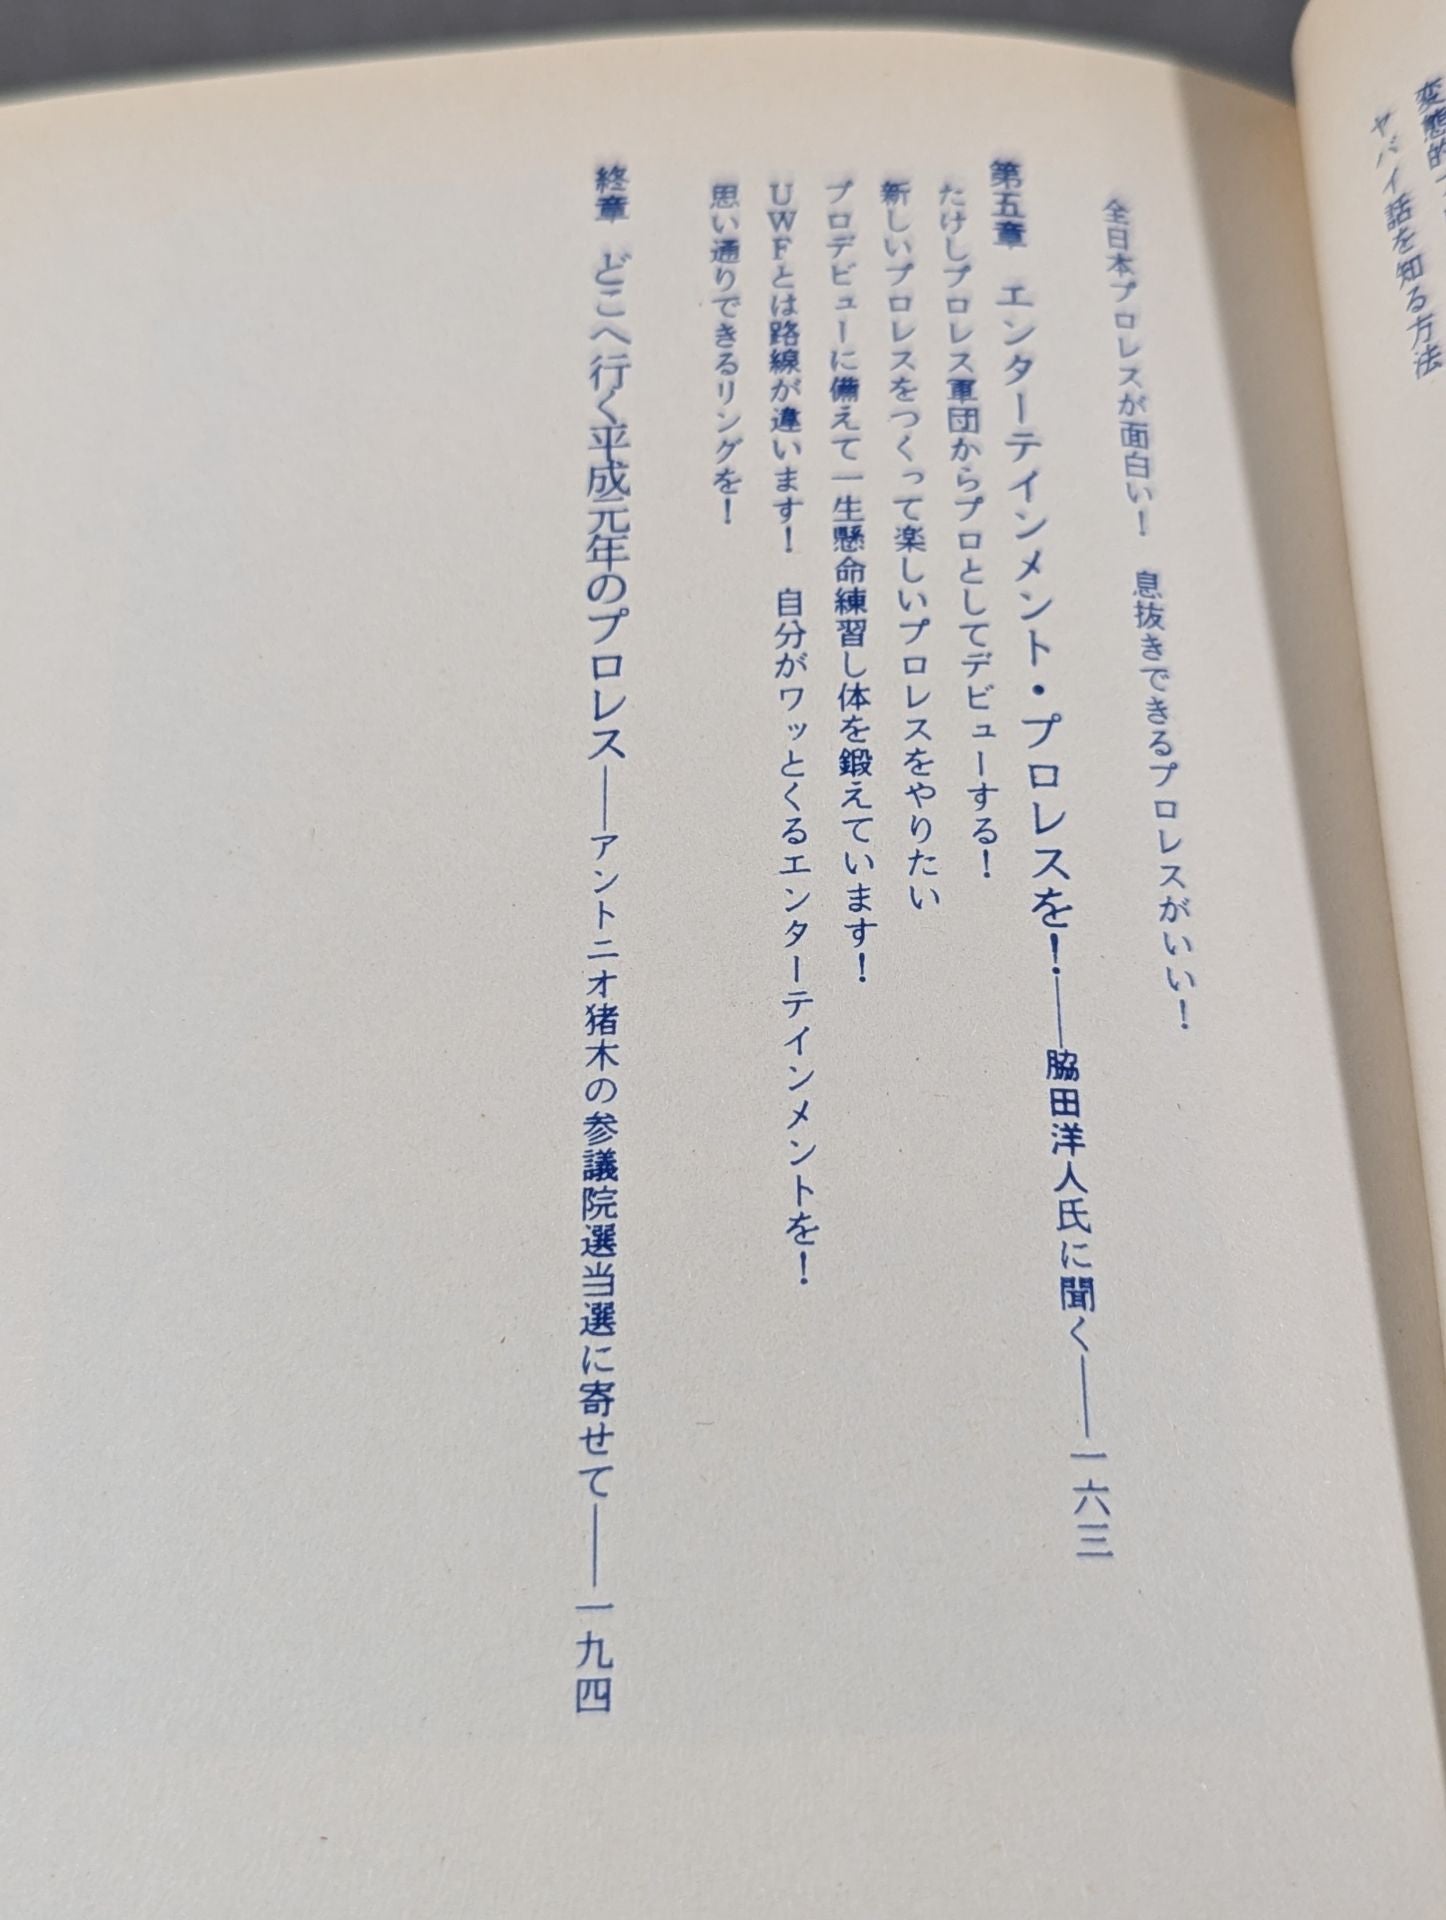 変態的
ヤバイ話を知る方法
全日本プロレスが面白い！　息抜きできるプロレスがいい！
第五章　エンターテインメント・プロレスを！――脇田洋人氏に聞く――一六三
たけしプロレス軍団からプロとしてデビューする！
新しいプロレスをつくって楽しいプロレスをやりたい
プロデビューに備えて一生懸命練習し体を鍛えています！
UWFとは路線が違います！　自分がワッとくるエンターテインメントを！
思い通りできるリングを！
終章　どこへ行く平成元年のプロレス――アントニオ猪木の参議院選当選に寄せて――一九四